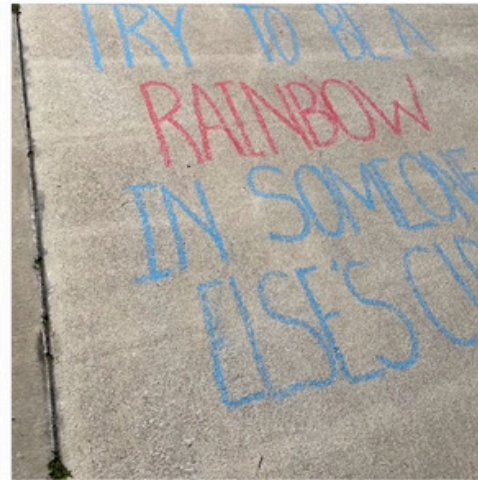 TRY TO BE A
RAINBOW
IN SOMEONE
ELSE'S